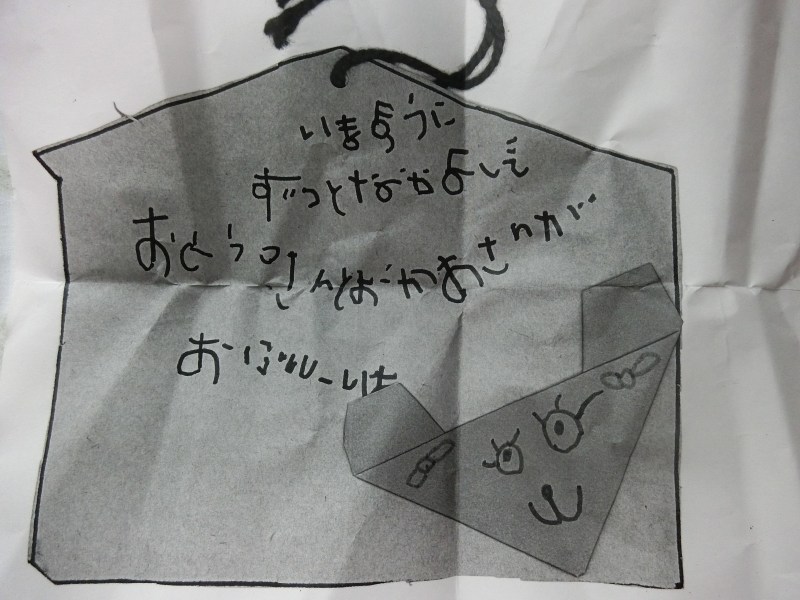 いまように
ずっとなかよしで
おとうさんとおかあさんが